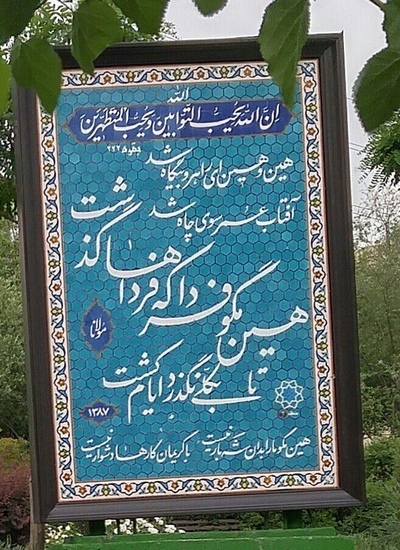 الله
إنّ الله یحب التوّابین و یحب المتطهّرین
بقره ۲۲۲
هین و هین ای راهرو بیگاه شد
آفتاب عمر سوی چاه شد
هین مگو فردا که فرداها گذشت
مولانا
تا بکلی نگذرد ایام کشت
۱۳۸۷
هین مگو ما را بدان شه بار نیست با کریمان کارها دشوار نیست